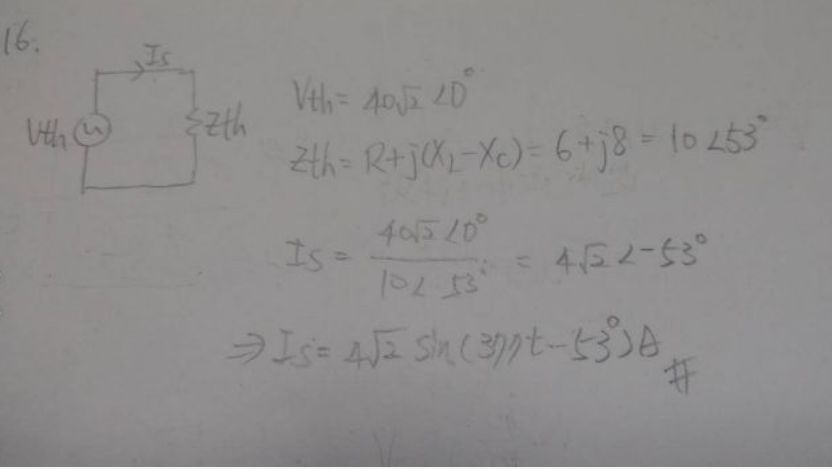 16.
Is
Vth
Zth
Vth = 40√2 ∠0°
Zth = R+j(XL-XC) = 6+j8 = 10∠53°
Is = 40√2∠0° / 10∠53° = 4√2∠-53°
⇒ Is = 4√2 sin(377t-53°)A
#